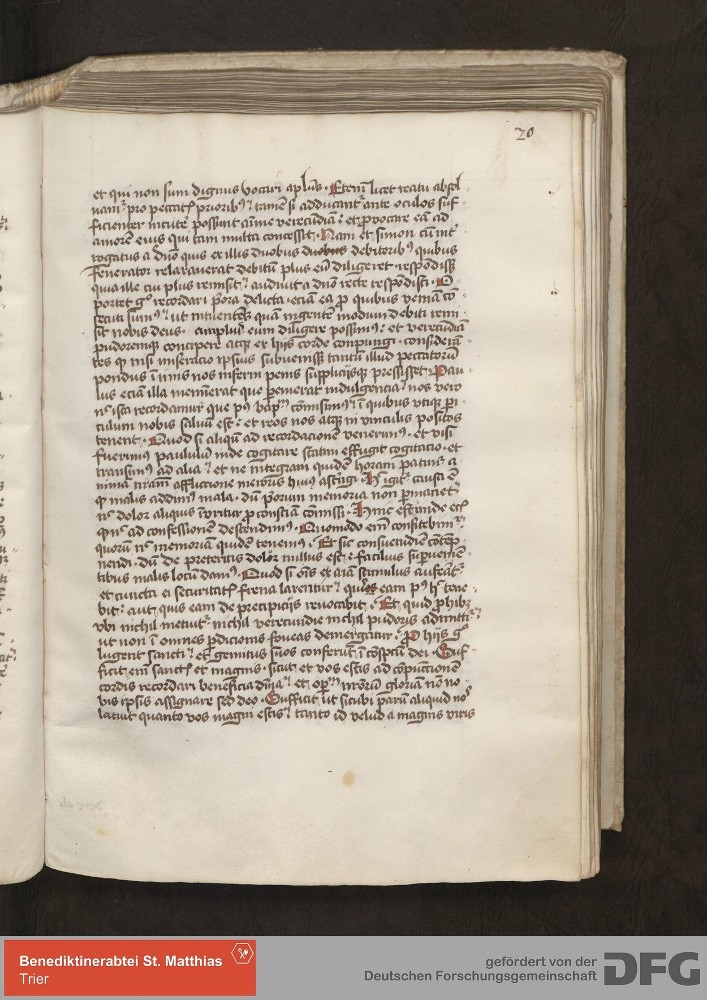 20
et qui non sum dignus vocari apl̄us. Etenī licet reatu absol
uam᷑ pro peccat᷒ priorib⁹ tamē si adducant᷑ ante oculos suf
ficienter incute possunt aīme verecūdiā et ꝓvocare eā ad
amorē eius qui tam multa concessit. Nam et simon cū int͛
rogatus a dn̄o quis ex illis duobus duobus debitorib⁹ quibus
fenerator relaxauerat debitū plus eū diligeret respōdissꝫ
quia ille cui plus remisit audiuit a dn̄o recte respōdisti. O
portet gͦ recordari p̄ora delicta eciā ea ꝓ quibus veniā cō
secuti sum⁹ ut intuentes quā ingentē modum debiti remi
sit nobis deus. amplius eum diligere possim⁹ et verecūdiā
pudoremqꝫ concipere atqꝫ ex hijs corde conpungi. considerā
tes qꝫ nisi miseracio ipsius subuenissꝫ tantū illud peccatorū
pondus īnimis nos inferni penis supplicijsqꝫ pressisset. Pau
lus eciā illa meminerat que ꝑmerat indulgencia nos vero
nͨ ista recordamur que p⁹ bap͛m cōmisim⁹ ī quibus vtiqꝫ ꝑi
culum nobis saluū est et reos nos atqꝫ in vinculis positos
tenent. Quod si aliqn̄ ad recordacionē venerim⁹. et visi
fuerim⁹ paululū inde cogitare statim effugit cogitacio et
transim⁹ ad alia et ne integram quidē horam patimr̄ a
nimā nr̄am afflictione meroris hui⁹ astrīgi. H igit᷑ causa ē
qꝫ malis addim⁹ mala. dū p̄orum memoria non ꝑmanet
nͨ dolor aliquis inurit᷑ ꝓ consciā cōmissi. Hinc est inde ec̄
qꝫ nͨ ad confessionē descendim⁹. Quomodo em̄ confitebim᷑
quorū nͨ memoriā quidē tenem⁹. Et sic consuetudiē cōtep
nendi. dū de preteritis dolor nullus est facilius suꝑuenien
tibus malis locū dam⁹. Quod si oīs ex aīa stimulus aufeat᷑
et cuncta ei securitat᷒ frena laxentur quis eam p⁹ h tene
bit aut quis eam de precipicijs reuocabit. Et quid ꝓhibꝫ
vbi nichil metuit᷑ nichil verecundie nichil pudoris admittit᷑
ut non ī omnes ꝑdicionis foueas demergatur. Pro hijs gͦ
lugent sancti et gemitus suos conferūt ī cōspectū dei. Suf
ficit em̄ sanctis et magnis. sicut et vos estis ad cōpunctionē
cordis recordari beneficia diuīa et opum vr̄orū gloriā nō no
vis ipsis assignare sed deo. Sufficit ut sicubi parū aliquid vio
latur quanto vos magni estis tanto id velud a magnis viris
Benediktinerabtei St. Matthias
Trier
gefördert von der
Deutschen Forschungsgemeinschaft
DFG